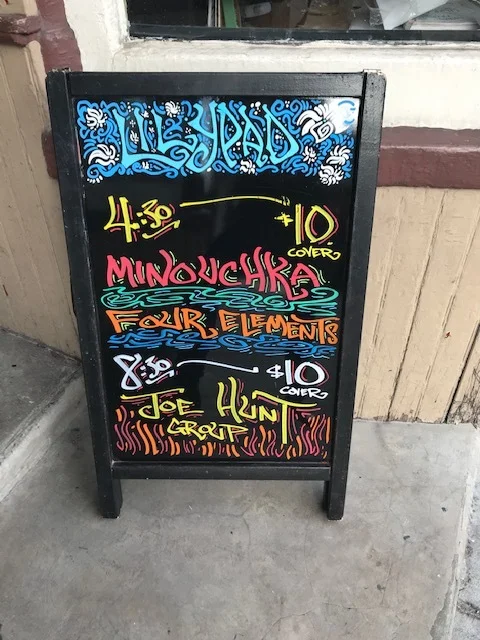 LILYPAD
4:30 $10
COVER
MINOUCHKA
FOUR ELEMENTS
8:30 $10
COVER
JOE HUNT
GROUP